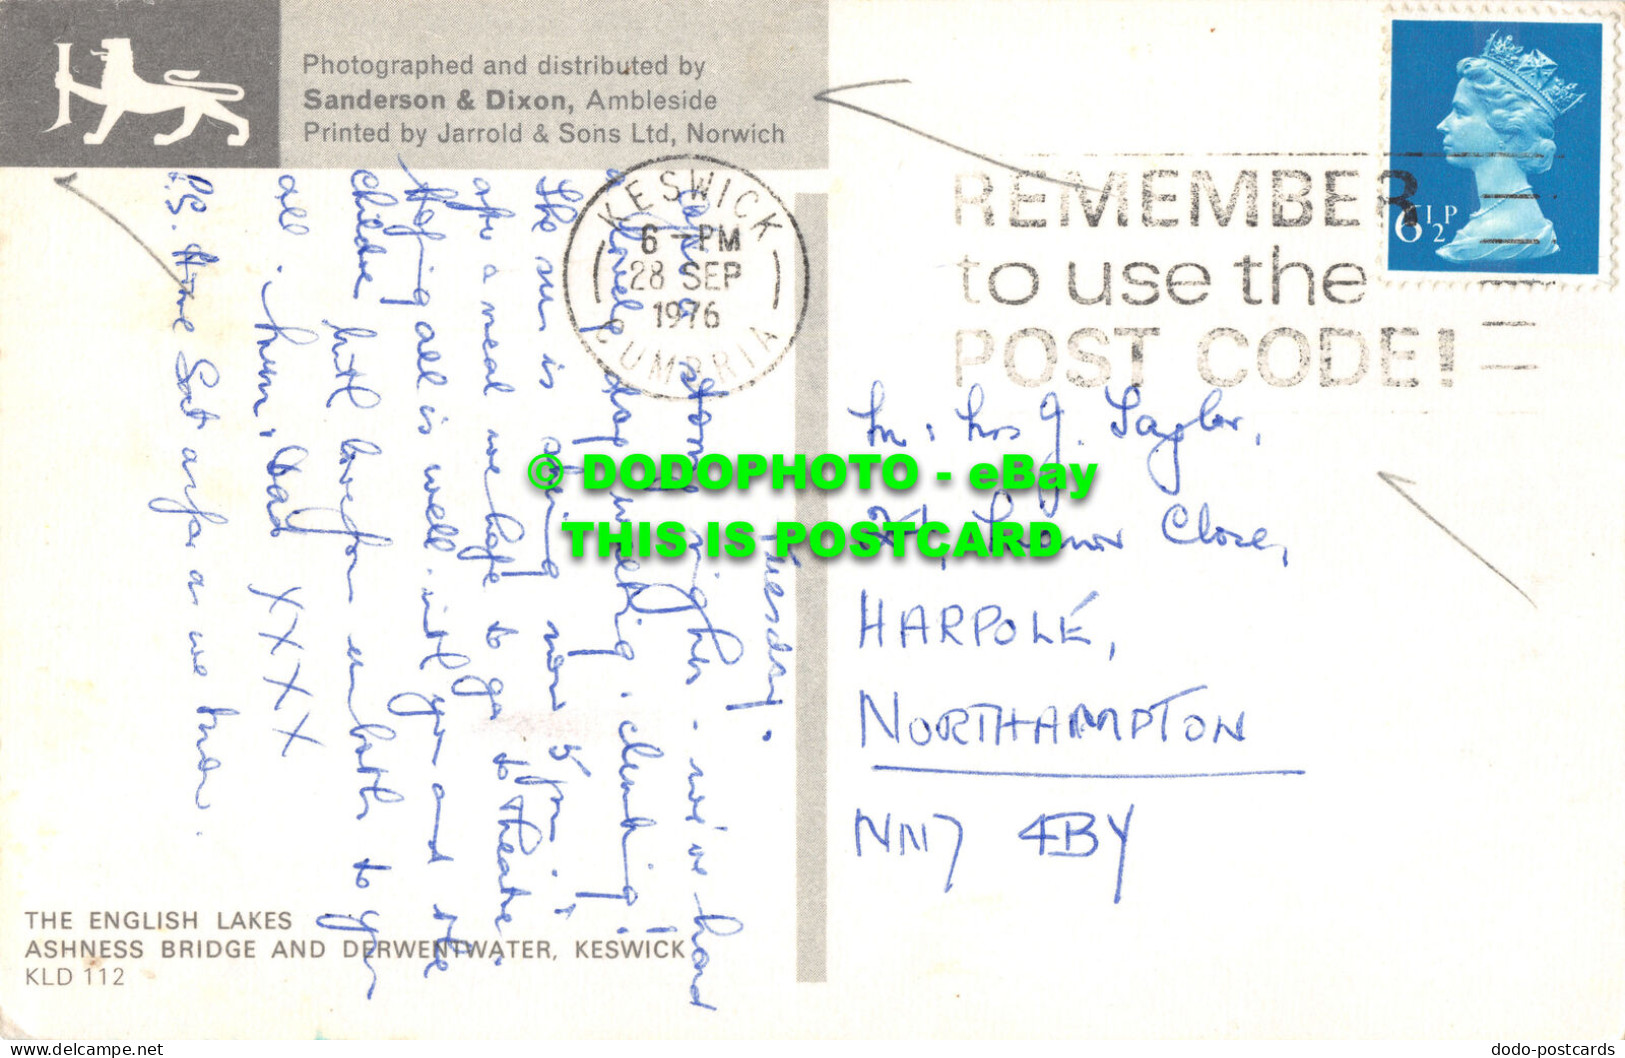 Photographed and distributed by
Sanderson & Dixon, Ambleside
Printed by Jarrold & Sons Ltd, Norwich
KESWICK
6 - PM
28 SEP
1976
CUMBRIA
REMEMBER
to use the
POST CODE!
6½P
Tuesday.
stormy night - we've had
a lovely day walking, climbing!
The sun is shining now 5pm;
after a meal we hope to go to theatre.
Hoping all is well with you and the
children with love from us both to you
all. Mum, Dad XXXX
P.S. Anne Sat as far as we know.
Mr & Mrs J. Taylor,
Manor Close,
HARPOLE,
NORTHAMPTON
NN7 4BY
© DODOPHOTO - eBay
THIS IS POSTCARD
THE ENGLISH LAKES
ASHNESS BRIDGE AND DERWENTWATER, KESWICK
KLD 112
dodo-postcards
akpool.co.uk/com